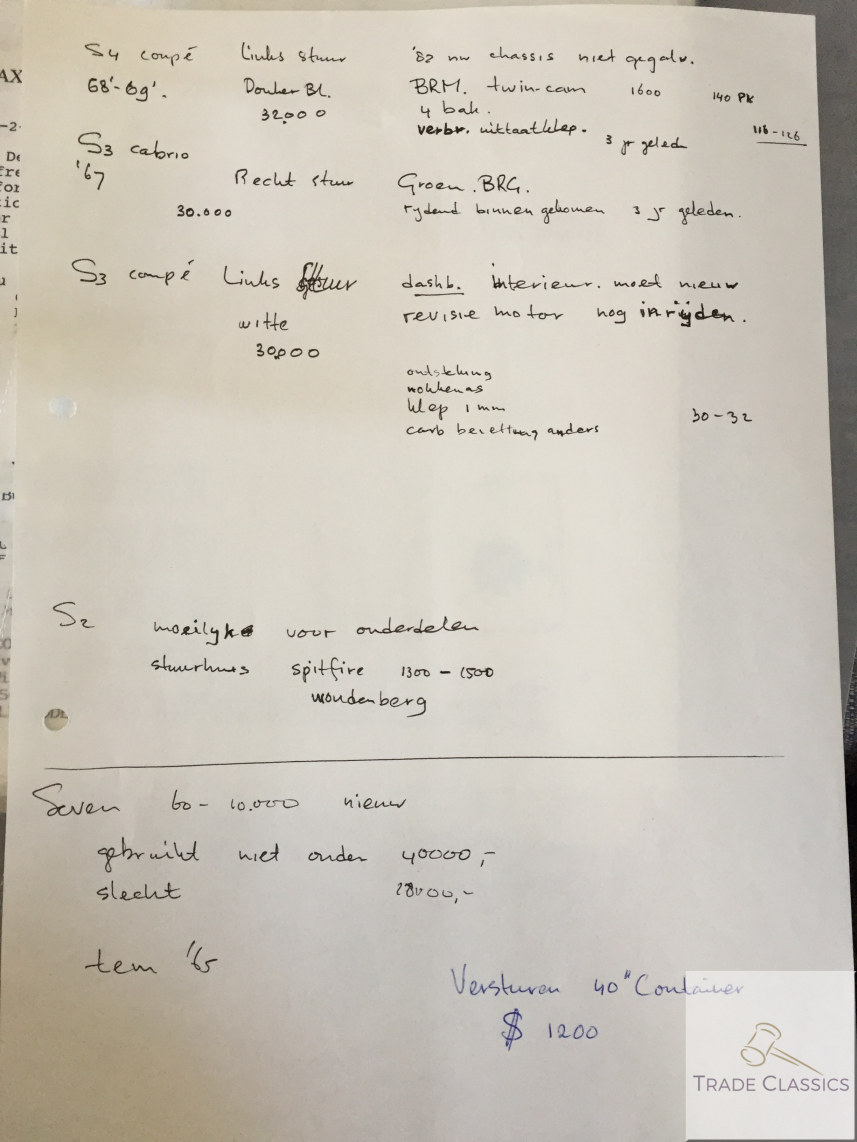 S4 coupé Links stuur '82 nw chassis niet gegalv.
68'-69'. Donker Bl. BRM. twin-cam 1600 140 PK
32.000 4 bak.
verbr. uitlaatklep. 3 jr geleden 116-126
S3 cabrio
'67 Recht stuur Groen. BRG.
30.000 rydend binnen gekomen 3 jr geleden.
S3 coupé Links stuur dashb. interieur. moet nieuw
witte revisie motor nog inrijden.
30.000
ontsteking
nokkenas
klep 1 mm
carb anders 30-32
S2 moeilyk voor onderdelen
stuurhuis spitfire 1300 - 1500
woudenberg
Seven 60 - 10.000 nieuw
gebruikt niet onder 40000,-
slecht 28000,-
tem '65
Versturen 40" Container
$ 1200
TRADE CLASSICS
AX
-2-
De
fre
for
r
l
it